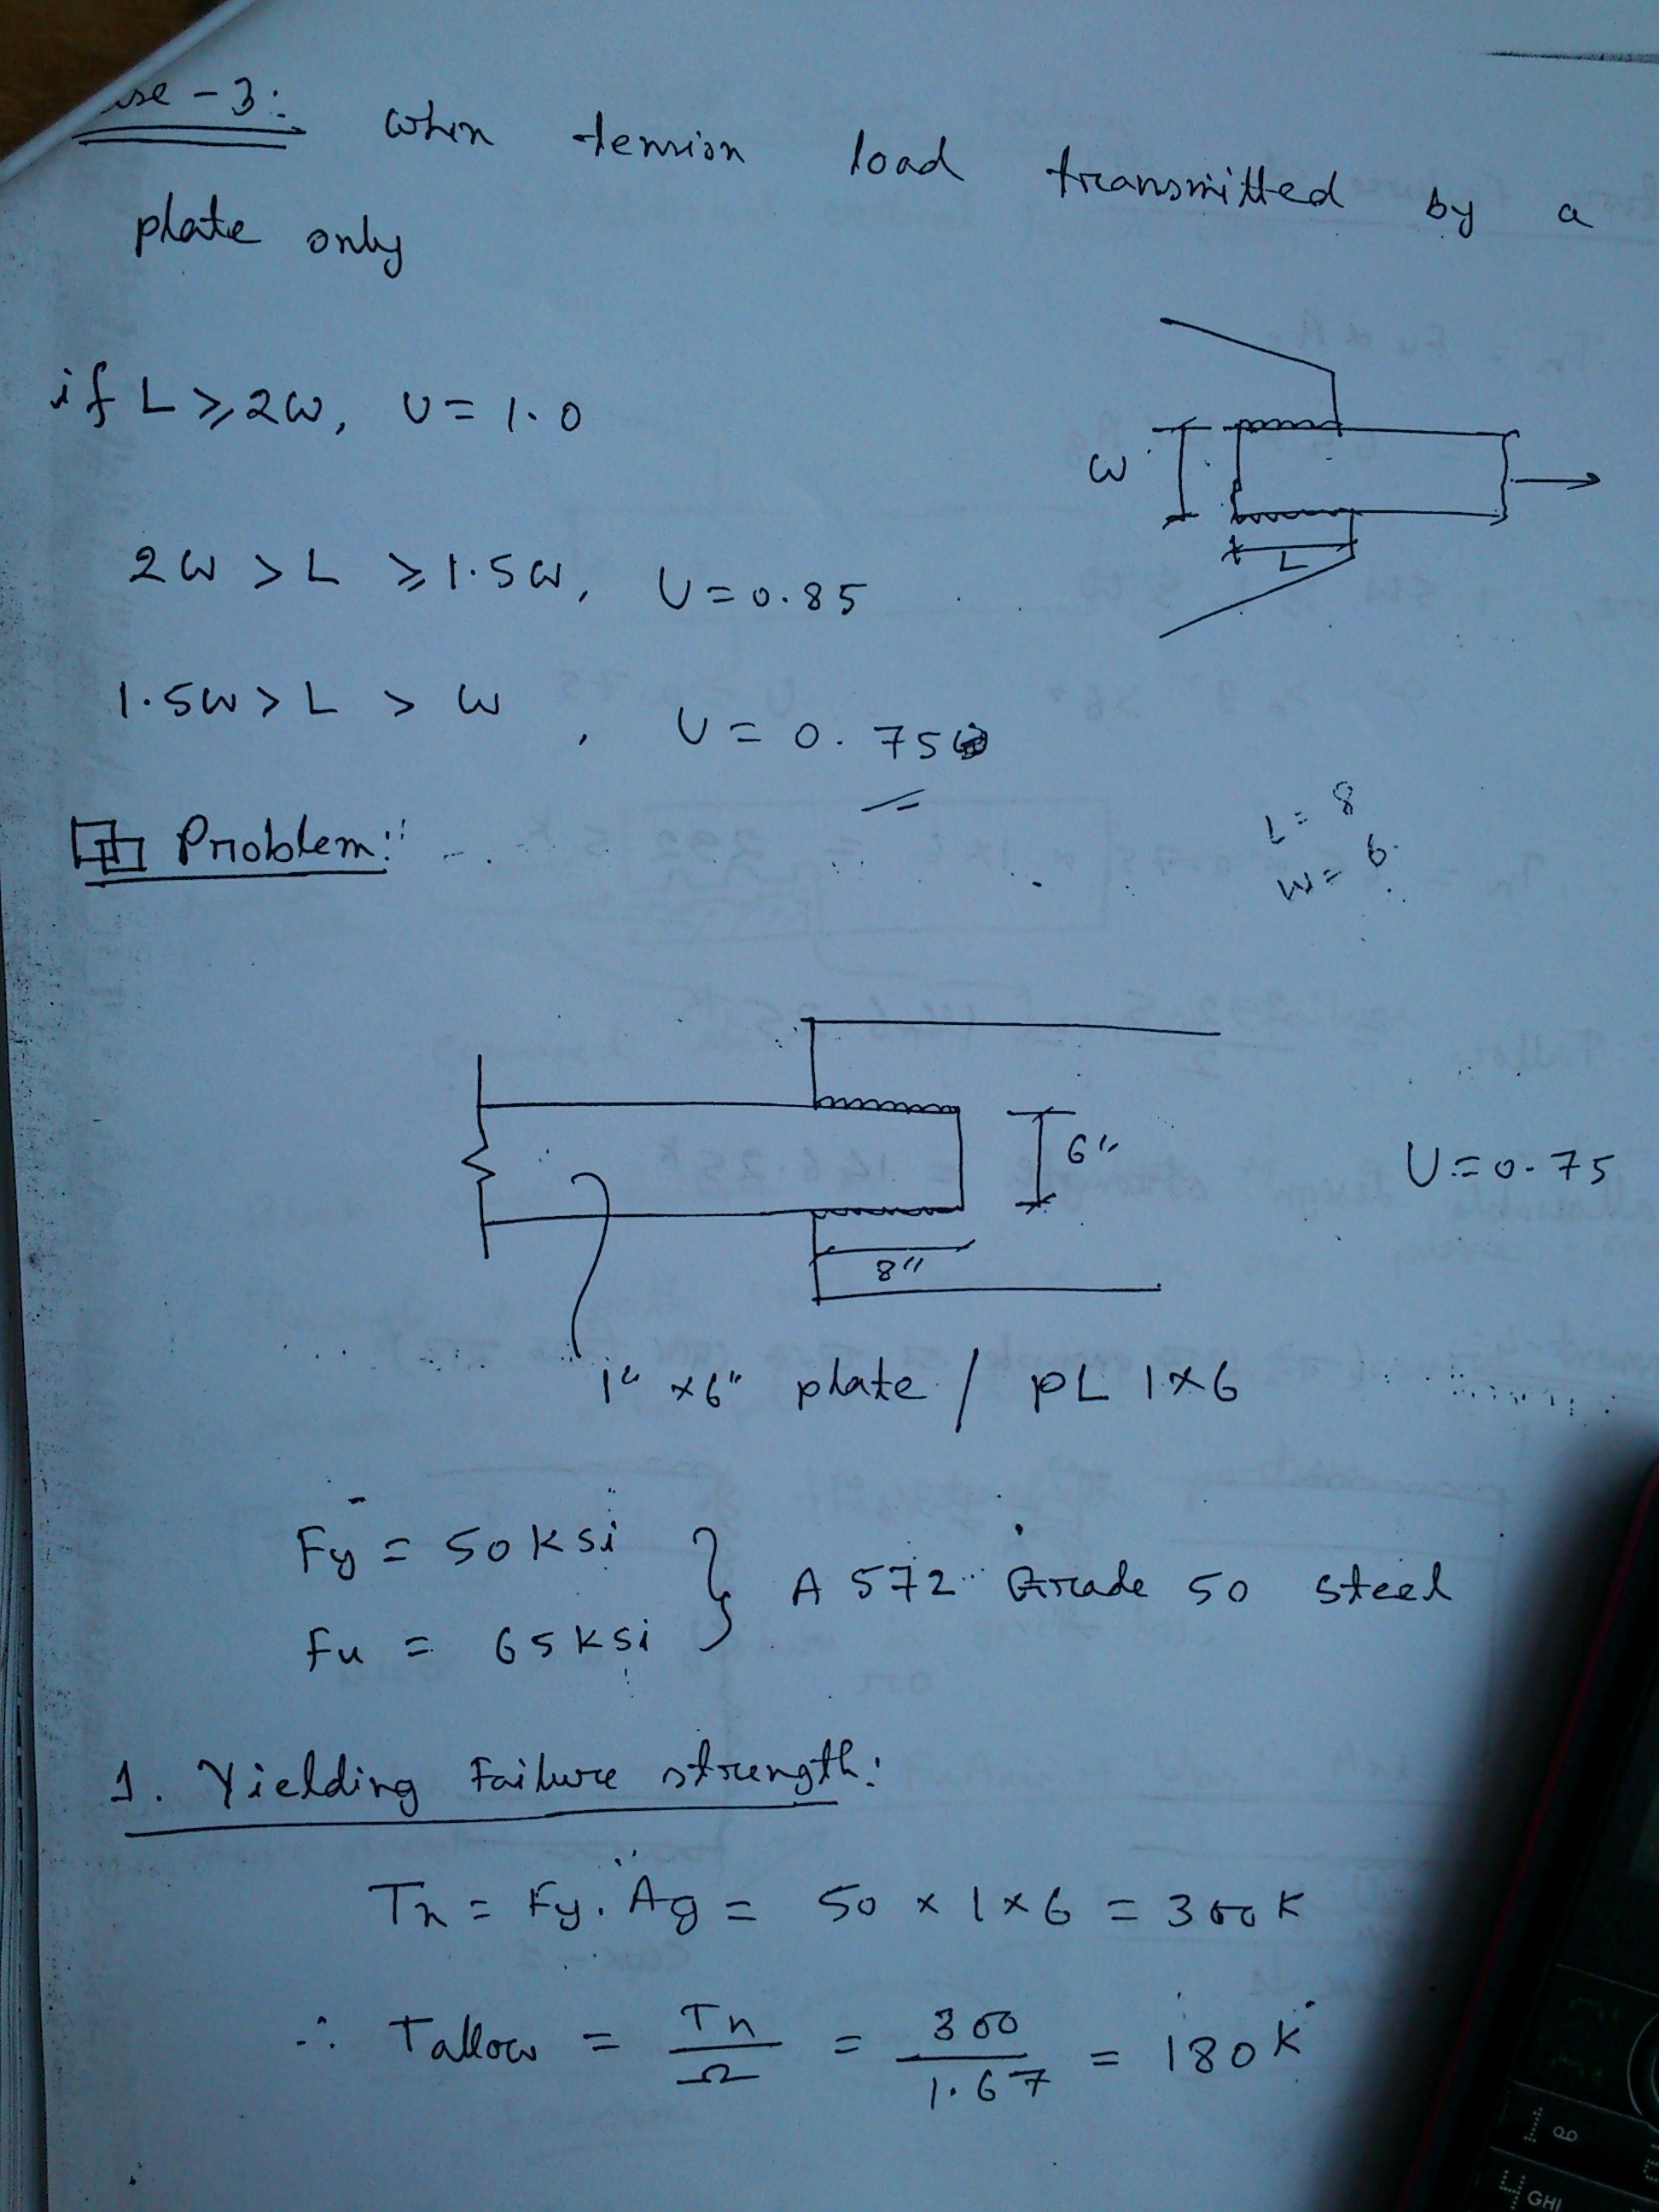 -3:
when tension load transmitted by a
plate only
if L ⩾ 2W, U = 1.0
W
L
2W > L ⩾ 1.5W, U = 0.85
1.5W > L > W, U = 0.75
L = 8
W = 6
Problem:
6"
U = 0.75
8"
1" x6" plate / PL 1×6
Fy = 50 ksi
Fu = 65 ksi
A 572 Grade 50 steel
1. Yielding Failure strength:
Tn = Fy. Ag = 50 × 1 × 6 = 300 K
∴ Tallow = Tn/Ω = 300/1.67 = 180 K
GHI